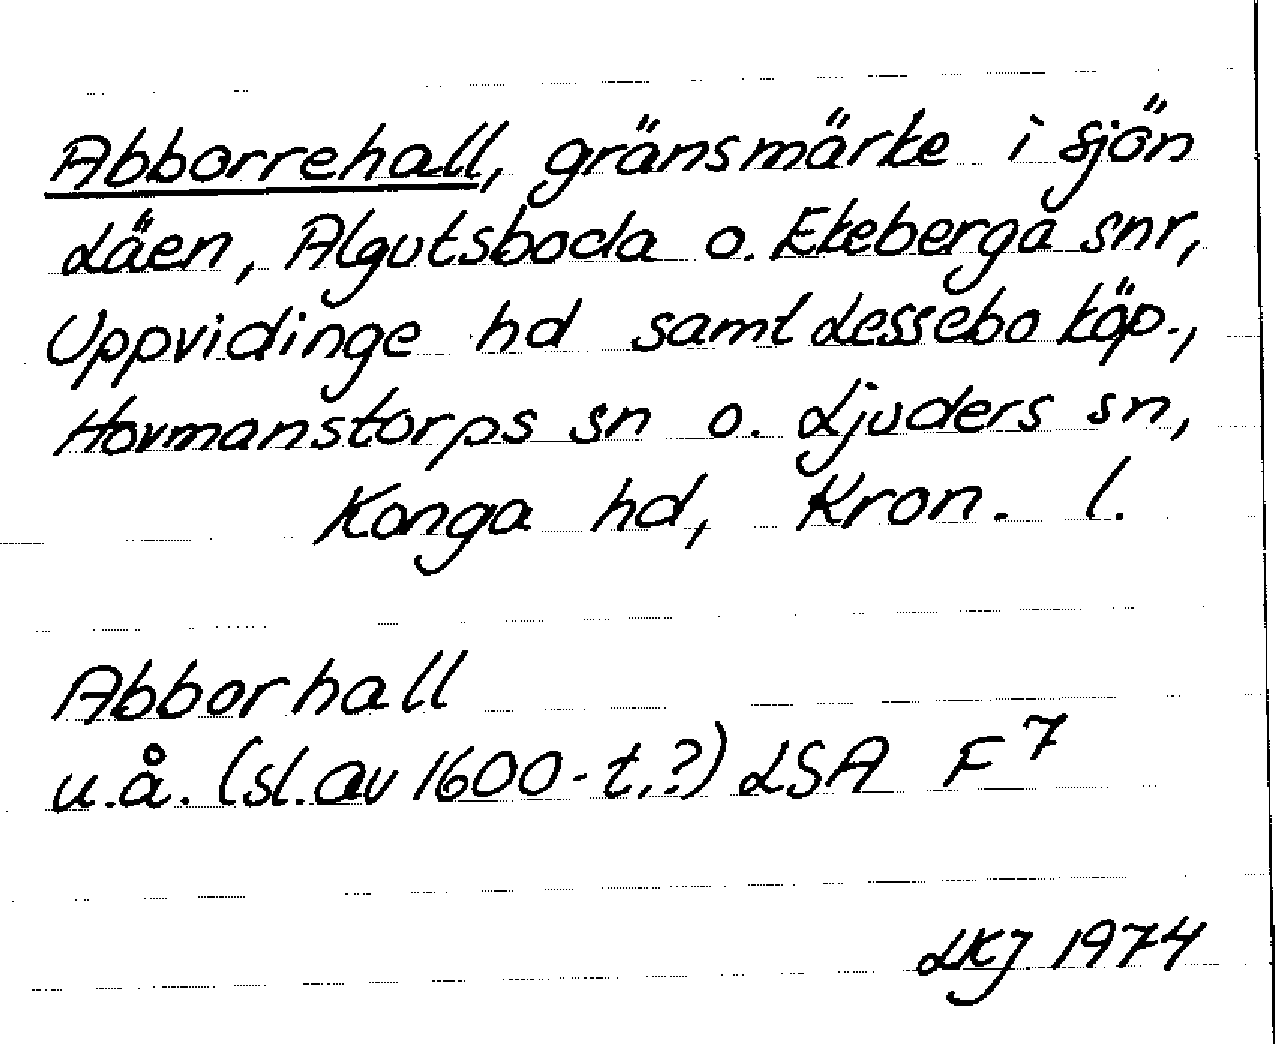 Abborrehall, gränsmärke i sjön
Läen, Algutsboda o. Ekeberga snr,
Uppvidinge hd samt Lessebo köp.,
Hovmanstorps sn o. Ljuders sn,
Konga hd, Kron. l.
Abborhall
u.å. (sl. av 1600-t.?) LSA F7
LKJ 1974